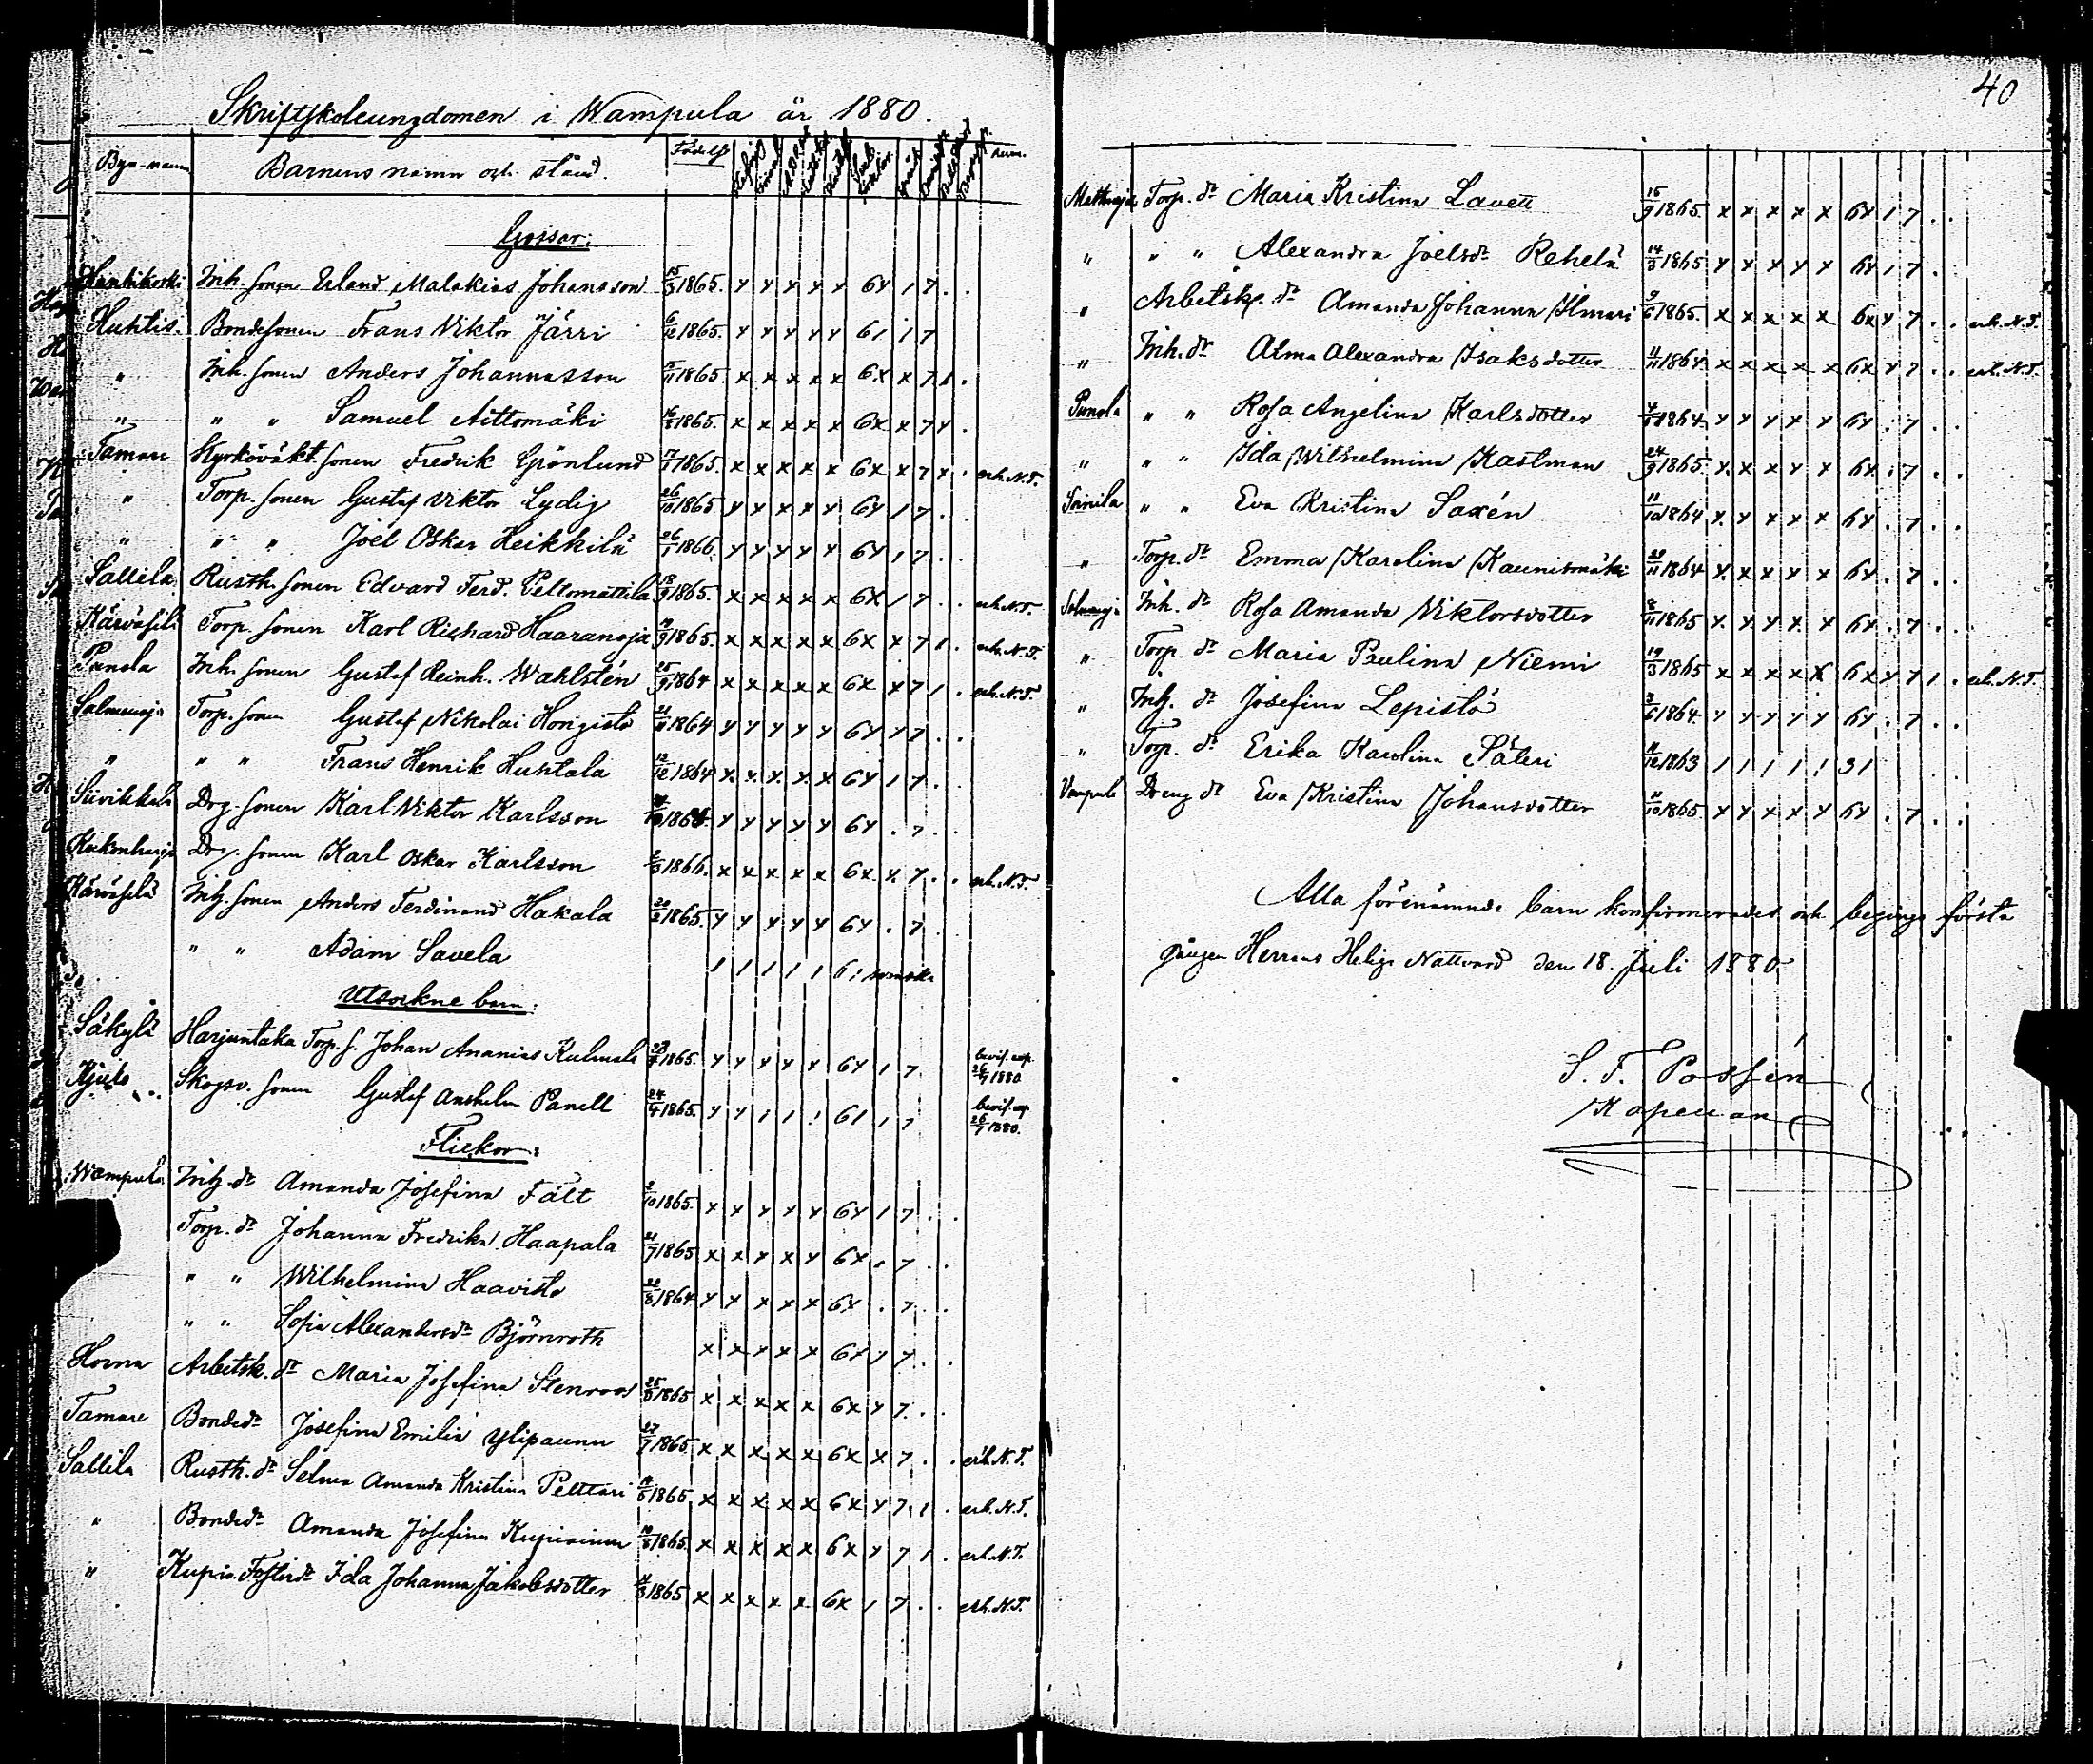 40
Skriftskoleungdomen i Wampula år 1880.
Bya-namn Barnens namn och stånd. Födelse
Gossar:
Inh. sonen Erland Malakias Johansson 15/3 1865. x x x x x 6x 1 7 . .
Huhtis. Bondesonen Frans Viktor Järri 6/12 1865. x x x x x 61 1 7
" Inh. sonen Anders Johannesson 5/11 1865. x x x x x 6x x 7 1 .
" " " Samuel Aittomäki 1865. x x x x x 6x x 7 x .
Tamare Kyrkovakt. sonen Fredrik Grönlund 17/1 1865. x x x x x 6x x 7 x . erh. N.T.
" Torp. sonen Gustaf Viktor Lydig 26/10 1865 x x x x x 6x 1 7 . .
" " " Joel Oskar Heikkilä 26/1 1866. x x x x x 6x 1 7 . .
Sallila Rusth. sonen Edvard Ferd. Peltomattila 13/9 1865. x x x x x 6x 1 7 . . erh. N.T.
Kärväsilä Torp. sonen Karl Richard Haaranoja 1865. x x x x x 6x x 7 1 . erh. N.T.
Punola Inh. sonen Gustaf Reinh. Wahlstén 25/9 1864 x x x x x 6x x 7 1 . erh. N.T.
Salmenoja Torp. sonen Gustaf Nikolai Hongisto 21/11 1864 x x x x x 6x x 7 . .
" " " Frans Henrik Huhtala 12/12 1864 x x x x x 6x 1 7 . .
Drg. sonen Karl Viktor Karlsson x x x x x 6x . 7 . .
Drg. sonen Karl Oskar Karlsson 2/3 1866. x x x x x 6x x 7 . . erh. N.T.
Kärväselä Inh. sonen Anders Ferdinand Hakala 20/2 1865. x x x x x 6x . 7 .
" " Adam Savela 1 1 1 1 1 6 1
Utsockne barn:
Säkylä Harjuntaka Torp. s. Johan Ananias Kulmala 1865. x x x x x 6x 1 7 bevis. exp. 26/7 1880
Kjulo Skogsv. sonen Gustaf Anshelm Panell 24/4 1865. x x 1 1 1 61 1 7 bevis. exp 26/7 1880.
Flickor:
Wampula Inh. dr Amanda Josefina Fält 2/10 1865. x x x x x 6x 1 7 . .
Torp. dr Johanna Fredrika Haapala 21/7 1865 x x x x x 6x 1 7 . .
" " Wilhelmina Haavisto 1864 x x x x x 6x . 7 . .
" " Sofia Alexandersdr Björnroth x x x x x 6x x 7 . .
Horna Arbetsk. dr Maria Josefina Stenroos 1865 x x x x x 6x x 7 . .
Tamare Bondedr Josefina Emilia Ylipaunu 27/7 1865. x x x x x 6x x 7 . . erh. N.T.
Sallila Rusth. dr Selma Amanda Kristina Pelttari 1865 x x x x x 6x x 7 1 . erh. N.T.
" Bondedr Amanda Josefina Kupiainen 1865. x x x x x 6x x 7 1 . erh. N.T.
" Fosterdr Ida Johanna Jakobsdotter 1865 x x x x x 6x 1 7 . . erh. N.T.
Torp. dr Maria Kristina Lavett 15/9 1865. x x x x x 6x 1 7 . .
" " " Alexandra Joelsdr Rehelä 14/3 1865 x x x x x 6x 1 7 .
" Arbetsk. dr Amanda Johanna Ilmari 9/6 1865. x x x x x 6x x 7 . . erh. N.T.
" Inh. dr Alma Alexandra Isaksdotter 11/11 1864 x x x x x 6x x 7 . . erh. N.T.
Punola " " Rosa Angelina Karlsdotter 1864 x x x x x 6x . 7 . .
" " " Ida Wilhelmina Kastman 24/9 1865 x x x x x 6x . 7 . .
Soinila " " Eva Kristina Saxén 11/10 1864 x x x x x 6x . 7 . .
" Torp. dr Emma Karolina Kaunismäki 1864 x x x x x 6x . 7 . .
Salmenoja Inh. dr Rosa Amanda Viktorsdotter 8/11 1865 x x x x x 6x . 7 . . .
" Torp. dr Maria Paulina Niemi 19/3 1865 x x x x x 6x x 7 1 . erh. N.T.
" Inh. dr Josefina Lepistö 3/6 1864 x x x x x 6x . 7 . .
" Torp. dr Erika Karolina Päteri 1863 1 1 1 1 1 31 . .
Vampula Dreng dr Eva Kristina Johansdotter 1865 x x x x x 6x . 7 . .
Alla förenämnde barn konfirmerades och begingo första
gången Herrans Helige Nattvard den 18. Juli 1880.
S. F. Possén
Kapellan